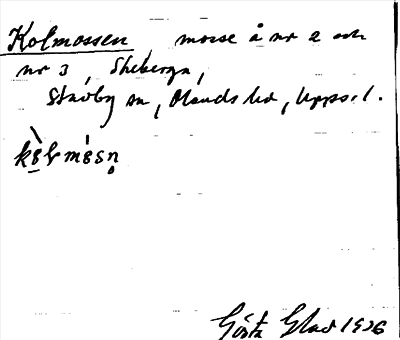 Kolmossen, mosse å nr 2 och
nr 3, Skeberga,
Stavby sn, Olands hd, Upps. l.
Gösta Glad 1926